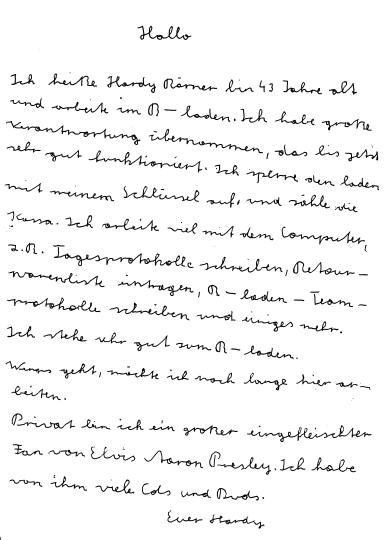 Hallo
Ich heiße Hardy Römer bin 43 Jahre alt
und arbeite im B-laden. Ich habe große
Verantwortung übernommen, das bis jetzt
sehr gut funktioniert. Ich sperre den laden
mit meinem Schlüssel auf, und zähle die
Kassa. Ich arbeite viel mit dem Computer,
z.B. Tagesprotokolle schreiben, Retour-
warenliste eintragen, B-laden-Team-
protokolle schreiben und einiges mehr.
Ich stehe sehr gut zum B-laden.
Wenns geht, möchte ich noch lange hier ar-
beiten.
Privat bin ich ein großer eingefleischter
Fan von Elvis Aaron Presley. Ich habe
von ihm viele Cds und Dvds.
Euer Hardy